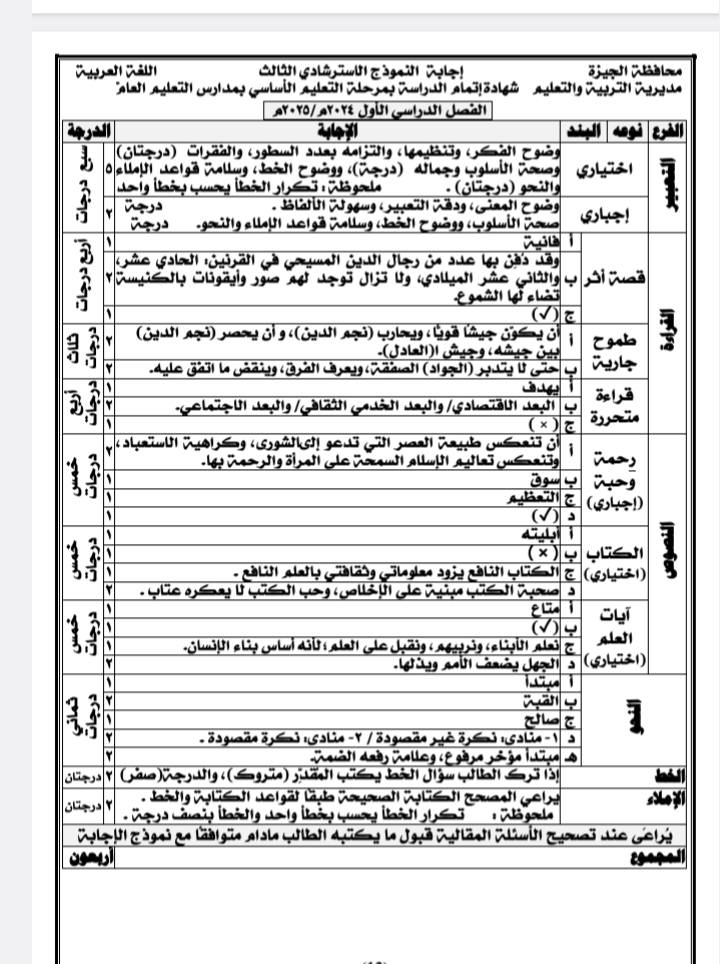 محافظة الجيزة إجابة النموذج الاسترشادي الثالث اللغة العربية
مديرية التربية والتعليم شهادة إتمام الدراسة بمرحلة التعليم الأساسي بمدارس التعليم العام
الفصل الدراسي الأول ٢٠٢٤م/٢٠٢٥م
الفرع نوعه البند الإجابة الدرجة
التعبير
اختياري
وضوح الفكر، وتنظيمها، والتزامه بعدد السطور، والفقرات (درجتان)
وصحة الأسلوب وجماله (درجة)، ووضوح الخط، وسلامة قواعد الإملاء ٥
والنحو (درجتان) . ملحوظة: تكرار الخطأ يحسب بخطأ واحد
سبع درجات
إجباري
وضوح المعنى، ودقة التعبير، وسهولة الألفاظ . درجة
صحة الأسلوب، ووضوح الخط، وسلامة قواعد الإملاء والنحو. درجة
٢
القراءة
قصة أثر
أ فانية ١
وقد دُفِن بها عدد من رجال الدين المسيحي في القرنين: الحادي عشر،
ب والثاني عشر الميلادي، ولا تزال توجد لهم صور وأيقونات بالكنيسة ٢
تضاء لها الشموع.
ج (✓) ١
أربع درجات
طموح جارية
أ أن يكوّن جيشًا قويًا، ويحارب (نجم الدين)، و أن يحصر (نجم الدين) ٢
بين جيشه، وجيش ا(العادل).
ب حتى لا يتدبر (الجواد) الصفقة، ويعرف الفرق، وينقض ما اتفق عليه. ٢
ثلاث درجات
قراءة متحررة
أ يهدف ١
ب البعد الاقتصادي/ والبعد الخدمي الثقافي/ والبعد الاجتماعي. ٢
ج (×) ١
أربع درجات
النصوص
رحمة وحبة (إجباري)
أ أن تنعكس طبيعة العصر التي تدعو إلى الشورى، وكراهية الاستعباد، ٢
وتنعكس تعاليم الإسلام السمحة على المرأة والرحمة بها.
ب سوق ١
ج التعظيم ١
د (✓) ١
خمس درجات
الكتاب (اختياري)
أ أبليته ١
ب (×) ١
ج الكتاب النافع يزود معلوماتي وثقافتي بالعلم النافع . ١
د صحبة الكتب مبنية على الإخلاص، وحب الكتب لا يعكره عتاب . ٢
خمس درجات
آيات العلم (اختياري)
أ متاع ١
ب (✓) ١
ج نعلم الأبناء، ونربيهم، ونقبل على العلم؛ لأنه أساس بناء الإنسان. ١
د الجهل يضعف الأمم ويذلها. ٢
خمس درجات
النحو
أ مبتدأ ١
ب القبة ٢
ج صالح ١
د ١- منادى: نكرة غير مقصودة / ٢- منادى: نكرة مقصودة . ٢
هـ مبتدأ مؤخر مرفوع، وعلامة رفعه الضمة. ٢
ثماني درجات
الخط إذا ترك الطالب سؤال الخط يكتب المقدّر (متروك)، والدرجة(صفر) ٢ درجتان
الإملاء يراعي المصحح الكتابة الصحيحة طبقًا لقواعد الكتابة والخط . ٢ درجتان
ملحوظة : تكرار الخطأ يحسب بخطأ واحد والخطأ بنصف درجة .
يُراعَى عند تصحيح الأسئلة المقالية قبول ما يكتبه الطالب مادام متوافقًا مع نموذج الإجابة
المجموع أربعون